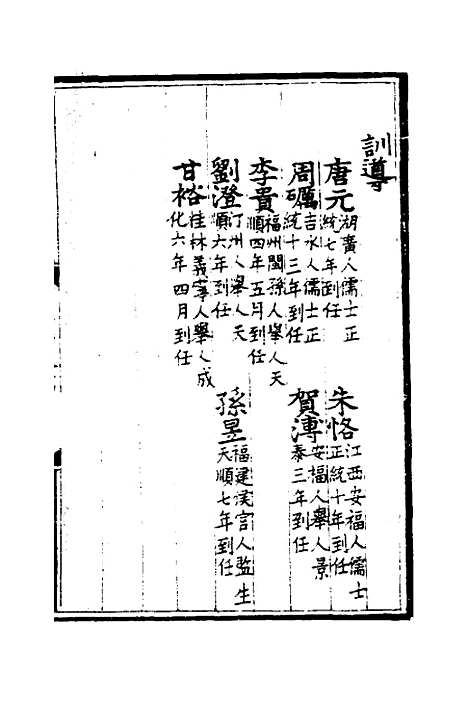 訓導
唐元湖廣人儒士正統七年到任
朱恪江西安福人儒士正統十年到任
周礪吉水人儒士正統十三年到任
賀溥安福人舉人景泰三年到任
李貴福州閩孫人舉人天順四年五月到任
劉澄汀州人舉人天順六年到任
孫昱福建漢言人監生天順七年到任
甘裕桂林義寧人舉人成化六年四月到任